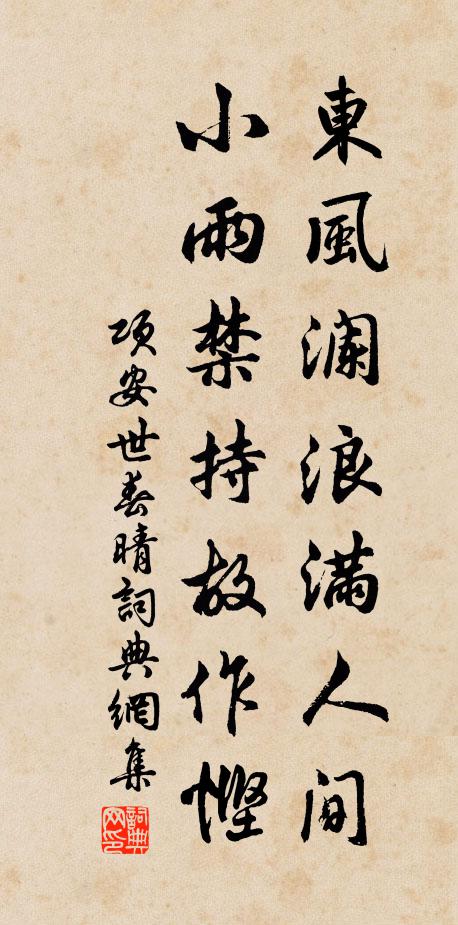 東風瀾浪滿人間
小雨禁持故作慳
项安世春晴詞典網集
詞典网印